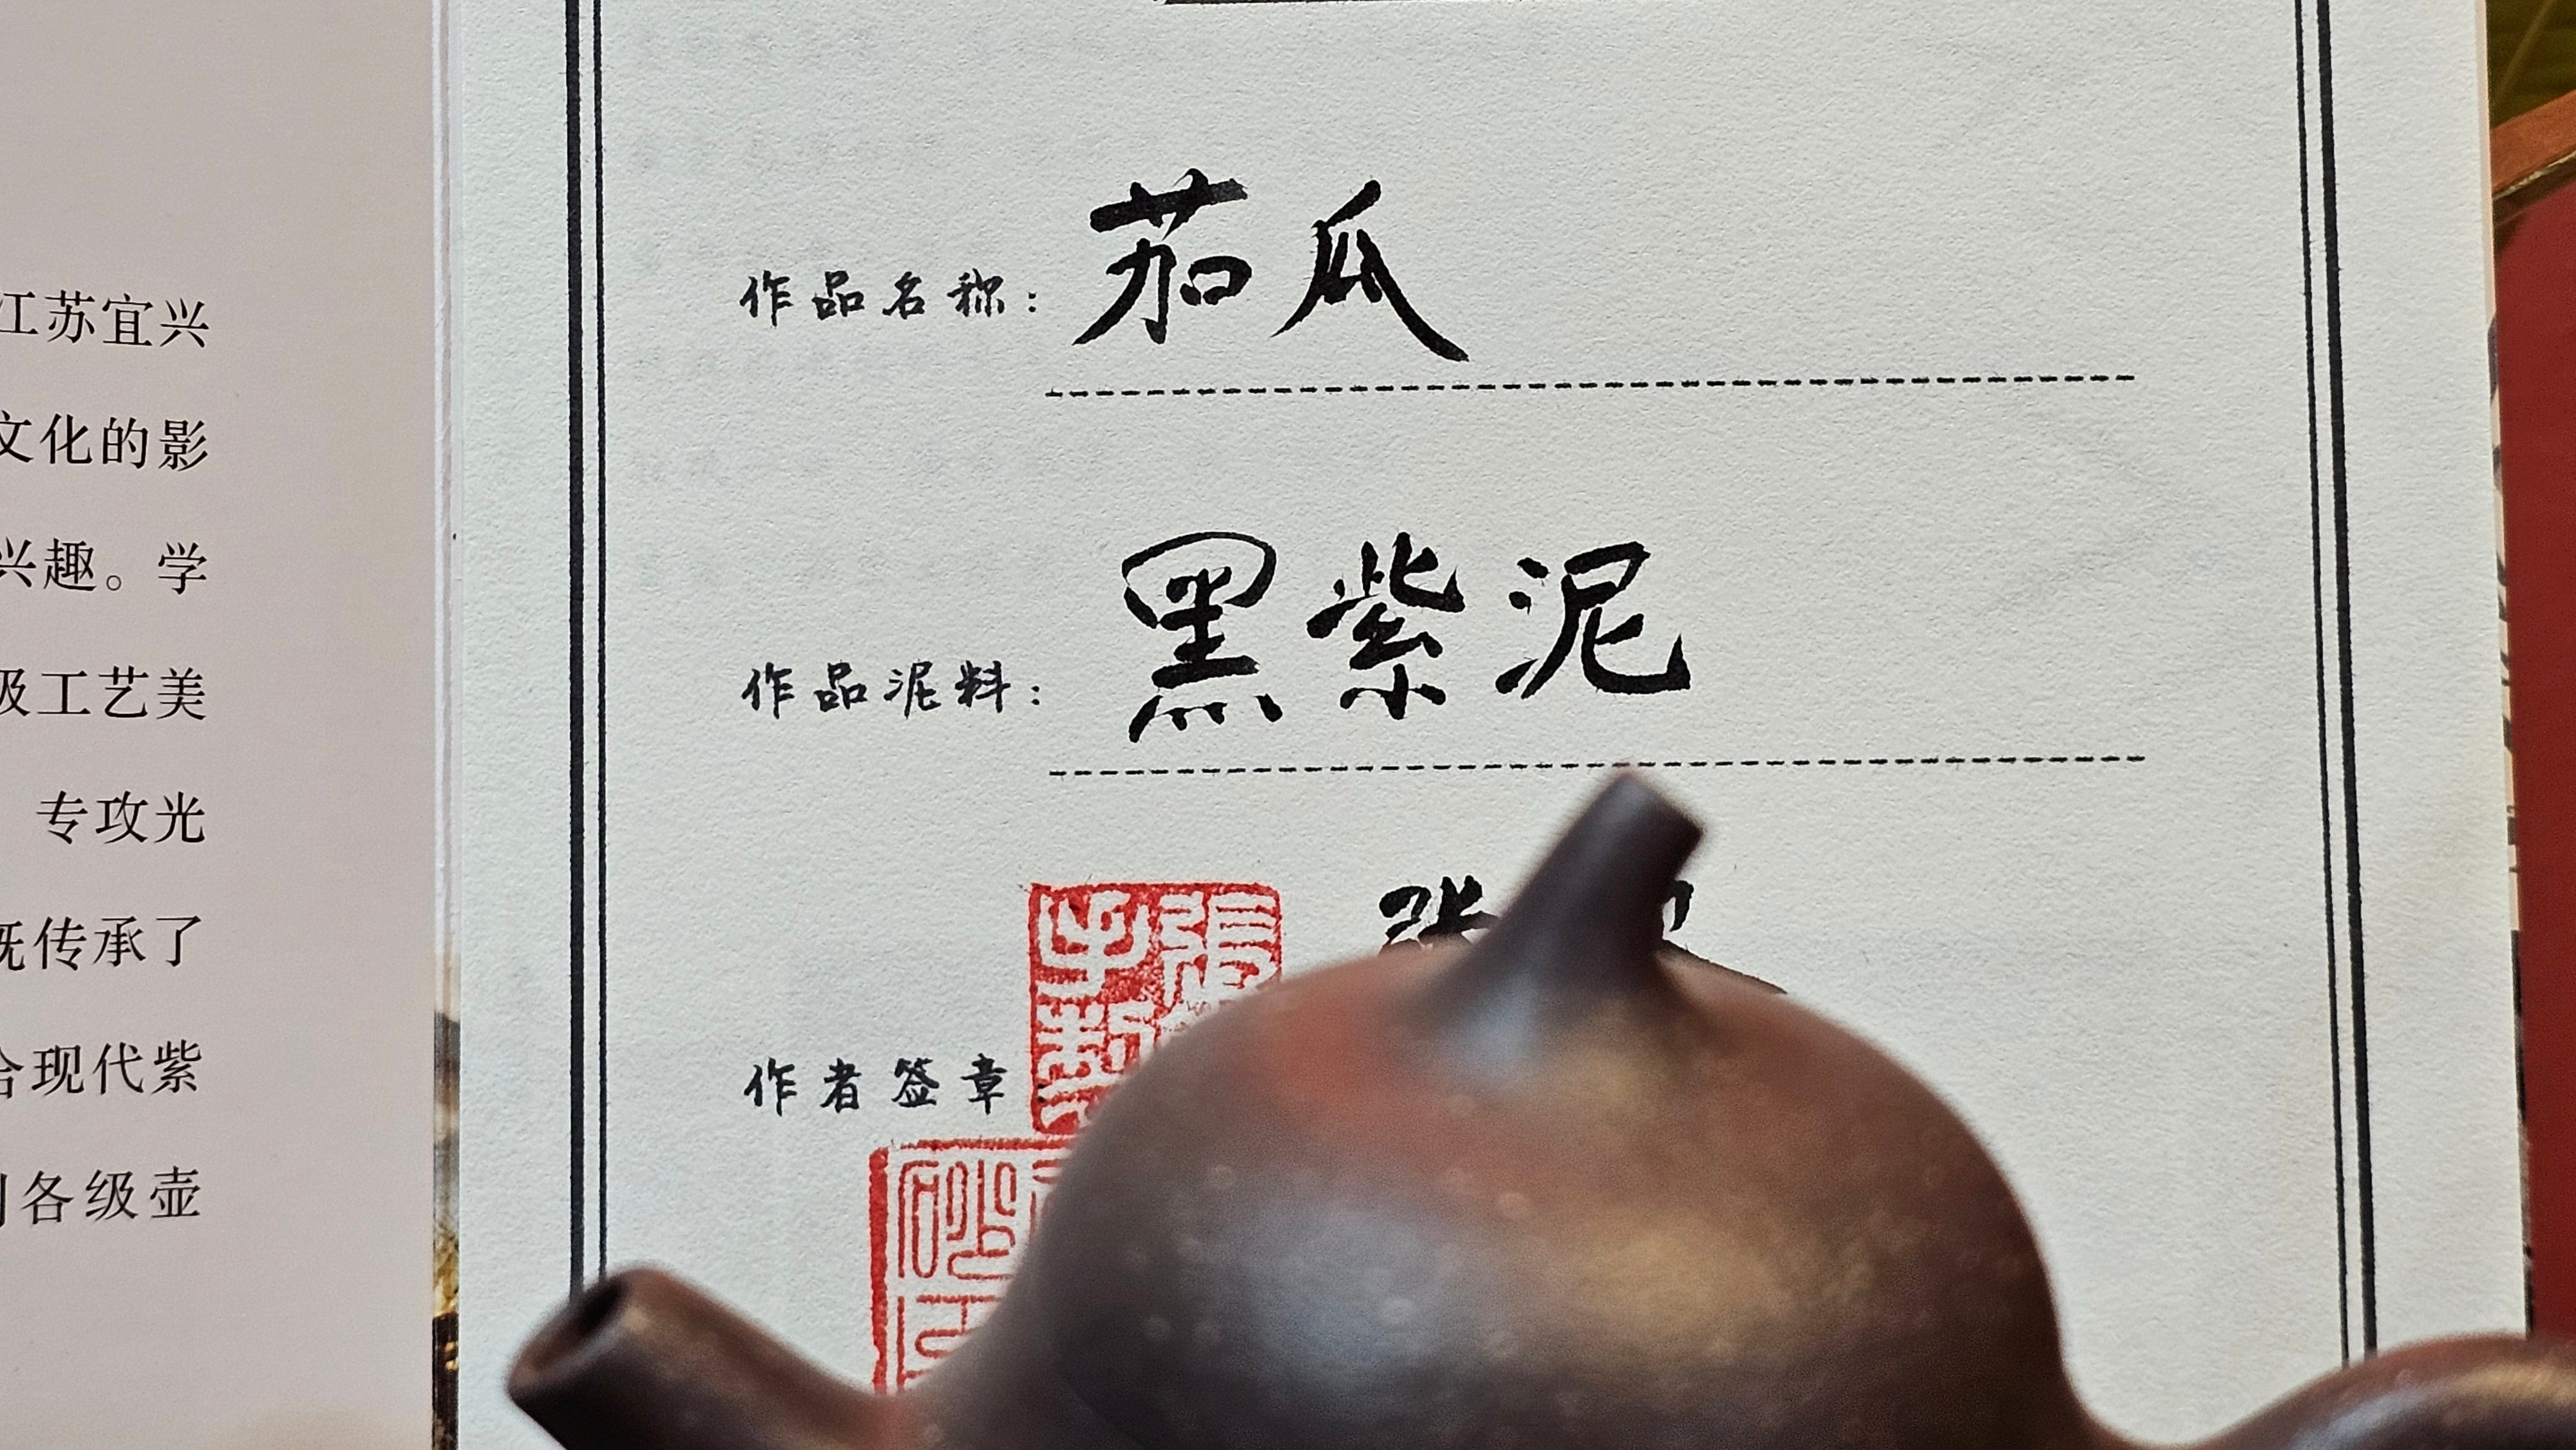 江苏宜兴
文化的影
兴趣。学
级工艺美
专攻光
既传承了
合现代紫
各级壶
作品名称：茄瓜
作品泥料：黑紫泥
张
作者签章：